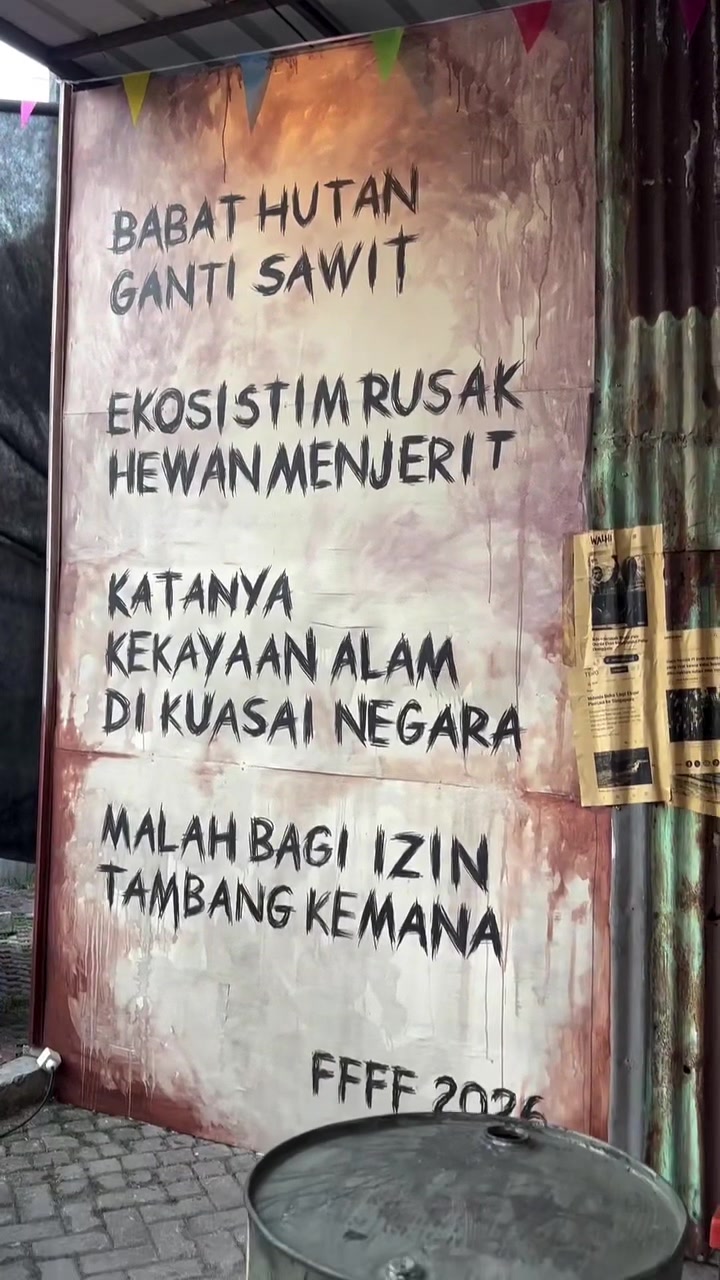 BABAT HUTAN
GANTI SAWIT
EKOSISTIM RUSAK
HEWAN MENJERIT
KATANYA
KEKAYAAN ALAM
DI KUASAI NEGARA
MALAH BAGI IZIN
TAMBANG KEMANA
FFFF 2026
WALHI